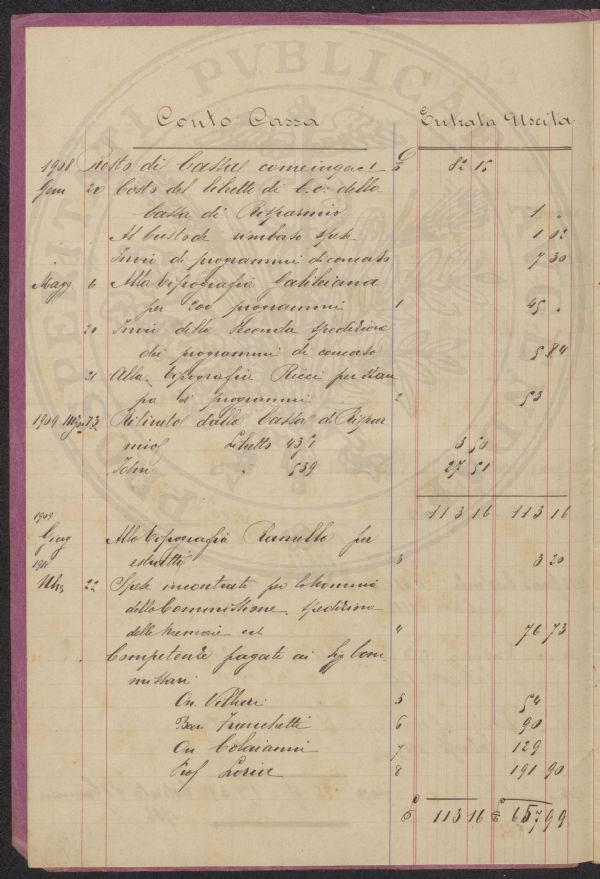 Conto Cassa Entrata Uscita
1908 Resto di Cassa come ingact £ 82 15
Genn 20 Costo del libretto di C.C. della
Cassa di Risparmio 1 "
Al Custode rimborso spese 1 02
Invio di programmi di concorso 7 30
Magg. 6 Alla tipografia Galileiana
per 200 programmi 1 45 "
20 Invio della seconda spedizione
dei programmi di concorso 5 84
21 Alla tipografia Ricci per stam
pa di programmi 2 53
1909 13 Ritirato dalla Cassa di Rispar
mio Libretto 3 50
Idem " 539 27 51
113 16 113 16
1909
Giug Alla tipografia Ramella per
estratti 3 3 20
1911
22 Spese incontrate per
della Commissione, spedizione
delle memorie ecc 4 76 73
Competenze pagate ai Sigg Com
missari
On. Villari 5 54
Bar. Franchetti 6 90
On Colaianni 7 129
Prof Loria 8 191 90
£ 113 16 £ 657 99
PVBLICAE
PROSPERITATI